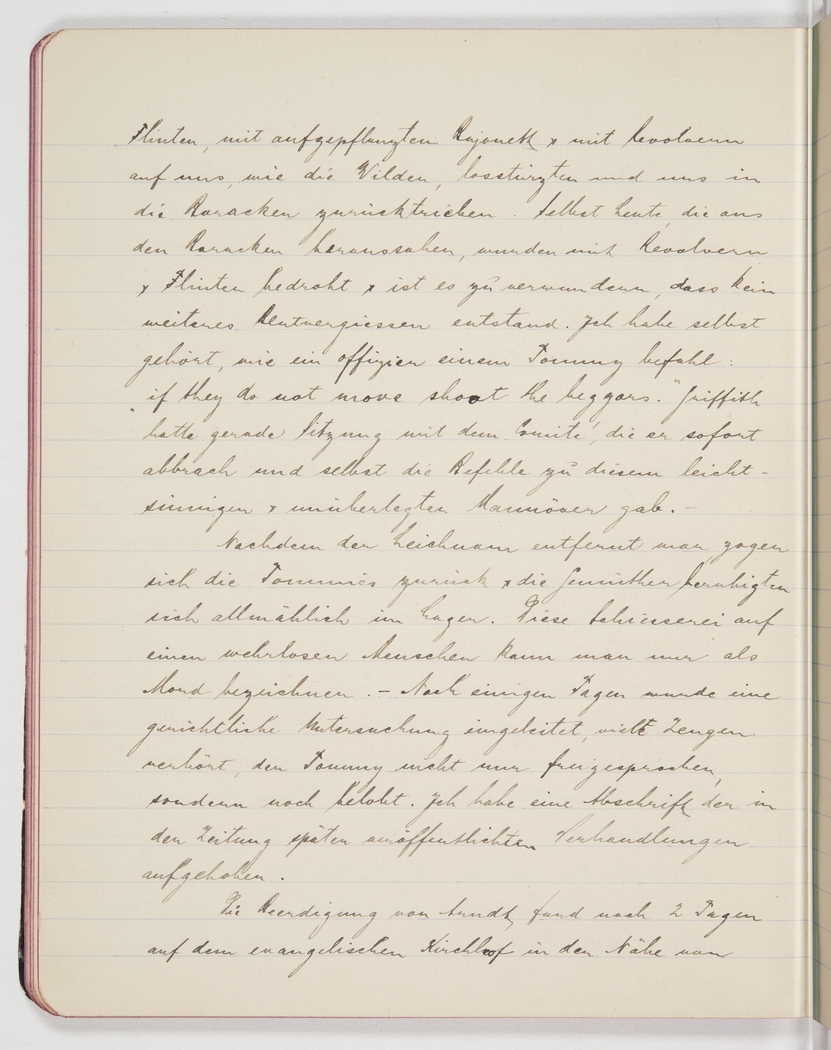 Flinten, mit aufgepflanzten Bajonett & mit Revolvern
auf uns, wie die Wilden, losstürzten und uns in
die Baracken zurücktrieben. Selbst Leute, die aus
den Baracken heraussahen, wurden mit Revolvern
& Flinten bedroht & ist es zu verwundern, dass kein
weiteres Blutvergiessen entstand. Ich habe selbst
gehört, wie ein Offizier einem Tommy befahl:
"if they do not move shoot the beggars." Griffith
hatte gerade Sitzung mit dem Comité, die er sofort
abbrach und selbst die Befehle zu diesem leicht-
sinnigen & unüberlegten Mannöver gab. -
Nachdem der Leichnam entfernt war, zogen
sich die Tommies zurück & die Gemüther beruhigten
sich allmählich im Lager. Diese Schiesserei auf
einen wehrlosen Menschen kann man nur als
Mord bezeichnen. - Nach einigen Tagen wurde eine
gerichtliche Untersuchung eingeleitet, viele Zeugen
verhört, der Tommy nicht nur freigesprochen,
sondern noch belobt. Ich habe eine Abschrift der in
der Zeitung später veröffentlichten Verhandlungen
aufgehoben.
Die Beerdigung von Arndt, fand nach 2 Tagen
auf dem evangelischen Kirchhof in der Nähe von